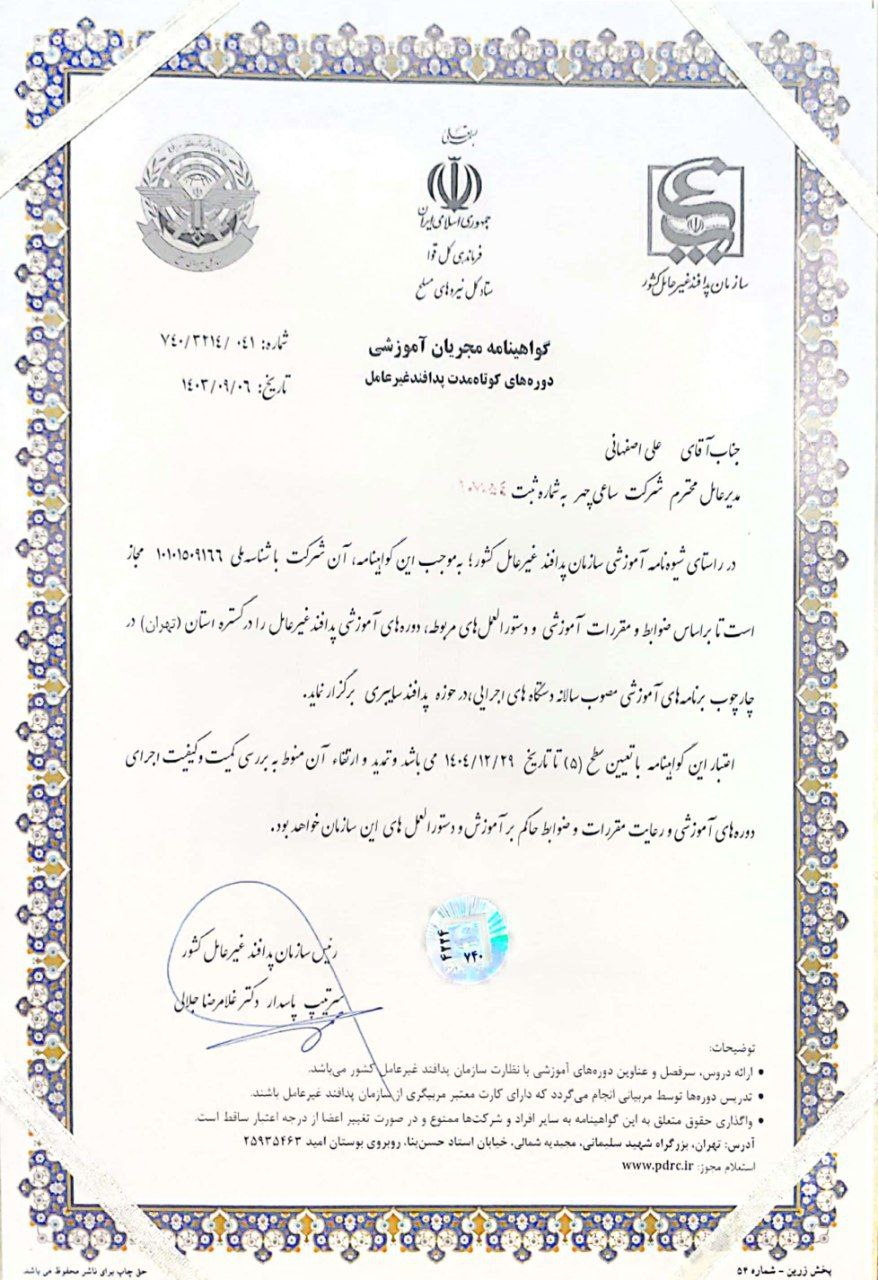 بسمه‌تعالی
جمهوری اسلامی ایران
فرماندهی کل قوا
ستاد کل نیروهای مسلح
سازمان پدافند غیرعامل کشور
گواهینامه مجریان آموزشی
دوره‌های کوتاه‌مدت پدافند غیرعامل
شماره: ۷۴۰/۳۲۱۴/۰۴۱
تاریخ: ۱۴۰۳/۰۹/۰۶
جناب آقای علی اصفهانی
مدیرعامل محترم شرکت ساعی چهر به شماره ثبت
در راستای شیوه‌نامه آموزشی سازمان پدافند غیرعامل کشور؛ به‌موجب این گواهینامه، آن شرکت با شناسه ملی ۱۰۱۰۱۵۰۹۱۶۶ مجاز
است تا براساس ضوابط و مقررات آموزشی و دستورالعمل‌های مربوطه، دوره‌های آموزشی پدافند غیرعامل را در گستره استان (تهران) در
چارچوب برنامه‌های آموزشی مصوب سالانه دستگاه های اجرایی،در حوزه پدافند سایبری برگزار نماید.
اعتبار این گواهینامه با تعیین سطح (۵) تا تاریخ ۱۴۰۴/۱۲/۲۹ می باشد و تمدید و ارتقاء آن منوط به بررسی کمیت و کیفیت اجرای
دوره‌های آموزشی و رعایت مقررات و ضوابط حاکم بر آموزش و دستورالعمل های این سازمان خواهد بود.
۴۲۲۴
۷۴۰
رئیس سازمان پدافند غیرعامل کشور
سرتیپ پاسدار دکتر غلامرضا جلالی
توضیحات:
• ارائه دروس، سرفصل و عناوین دوره‌های آموزشی با نظارت سازمان پدافند غیرعامل کشور می‌باشد.
• تدریس دوره‌ها توسط مربیانی انجام می‌گردد که دارای کارت معتبر مربیگری از سازمان پدافند غیرعامل باشند.
• واگذاری حقوق متعلق به این گواهینامه به سایر افراد و شرکت‌ها ممنوع و در صورت تغییر اعضا از درجه اعتبار ساقط است.
آدرس: تهران، بزرگراه شهید سلیمانی، مجیدیه شمالی، خیابان استاد حسن‌بنا، روبروی بوستان امید ۲۵۹۳۵۴۶۳
استعلام مجوز: www.pdrc.ir
پخش زرین - شماره ۵۴
حق چاپ برای ناشر محفوظ می باشد.